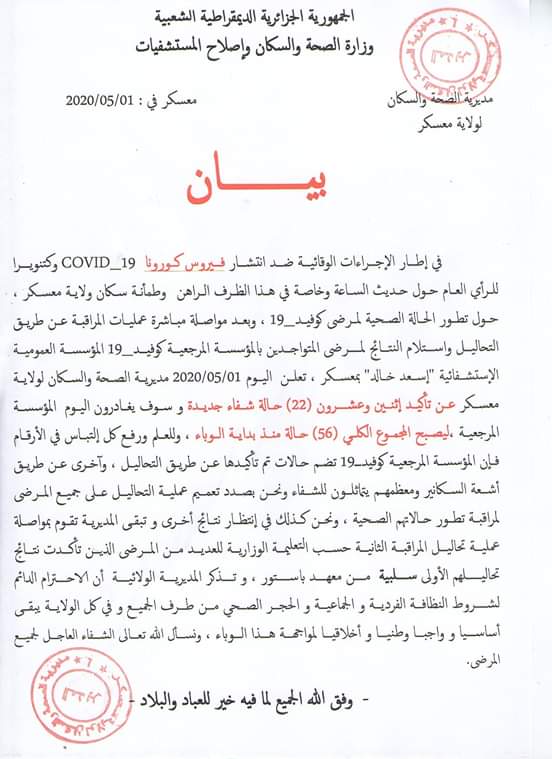 الجمهورية الجزائرية الديمقراطية الشعبية
وزارة الصحة والسكان وإصلاح المستشفيات
مديرية الصحة والسكان
لولاية معسكر
معسكر في : 2020/05/01
بيـــــان
في إطار الإجراءات الوقائية ضد انتشار فيروس كورونا COVID_19 وكتنويرا
للرأي العام حول حديث الساعة وخاصة في هذا الظرف الراهن وطمأنة سكان ولاية معسكر ،
حول تطور الحالة الصحية لمرضى كوفيد_19 ، وبعد مواصلة مباشرة عمليات المراقبة عن طريق
التحاليل واستلام النتائج لمرضى المتواجدين بالمؤسسة المرجعية كوفيد_19 المؤسسة العمومية
الإستشفائية "إسعد خالد" بمعسكر ، تعلن اليوم 2020/05/01 مديرية الصحة والسكان لولاية
معسكر عن تأكيد إثنين وعشرون (22) حالة شفاء جديدة و سوف يغادرون اليوم المؤسسة
المرجعية ،ليصبح المجموع الكلي (56) حالة منذ بداية الوباء ، وللعلم ورفع كل إلتباس في الأرقام
فإن المؤسسة المرجعية كوفيد_19 تضم حالات تم تأكيدها عن طريق التحاليل ، وآخرى عن طريق
أشعة السكانير ومعظمهم يتماثلون للشفاء ونحن بصدد تعميم عملية التحاليل على جميع المرضى
لمراقبة تطور حالاتهم الصحية ، ونحن كذلك في إنتظار نتائج أخرى و تبقى المديرية تقوم بمواصلة
عملية تحاليل المراقبة الثانية حسب التعليمة الوزارية للعديد من المرضى الذين تأكدت نتائج
تحاليلهم الأولى سلبية من معهد باستور ، و تذكر المديرية الولائية أن الاحترام الدائم
لشروط النظافة الفردية و الجماعية و الحجر الصحي من طرف الجميع و في كل الولاية يبقى
أساسيا و واجبا وطنيا و أخلاقيا لمواجهة هذا الوباء ، ونسأل الله تعالى الشفاء العاجل لجميع
المرضى.
- وفق الله الجميع لما فيه خير للعباد والبلاد -
المدير
المدير